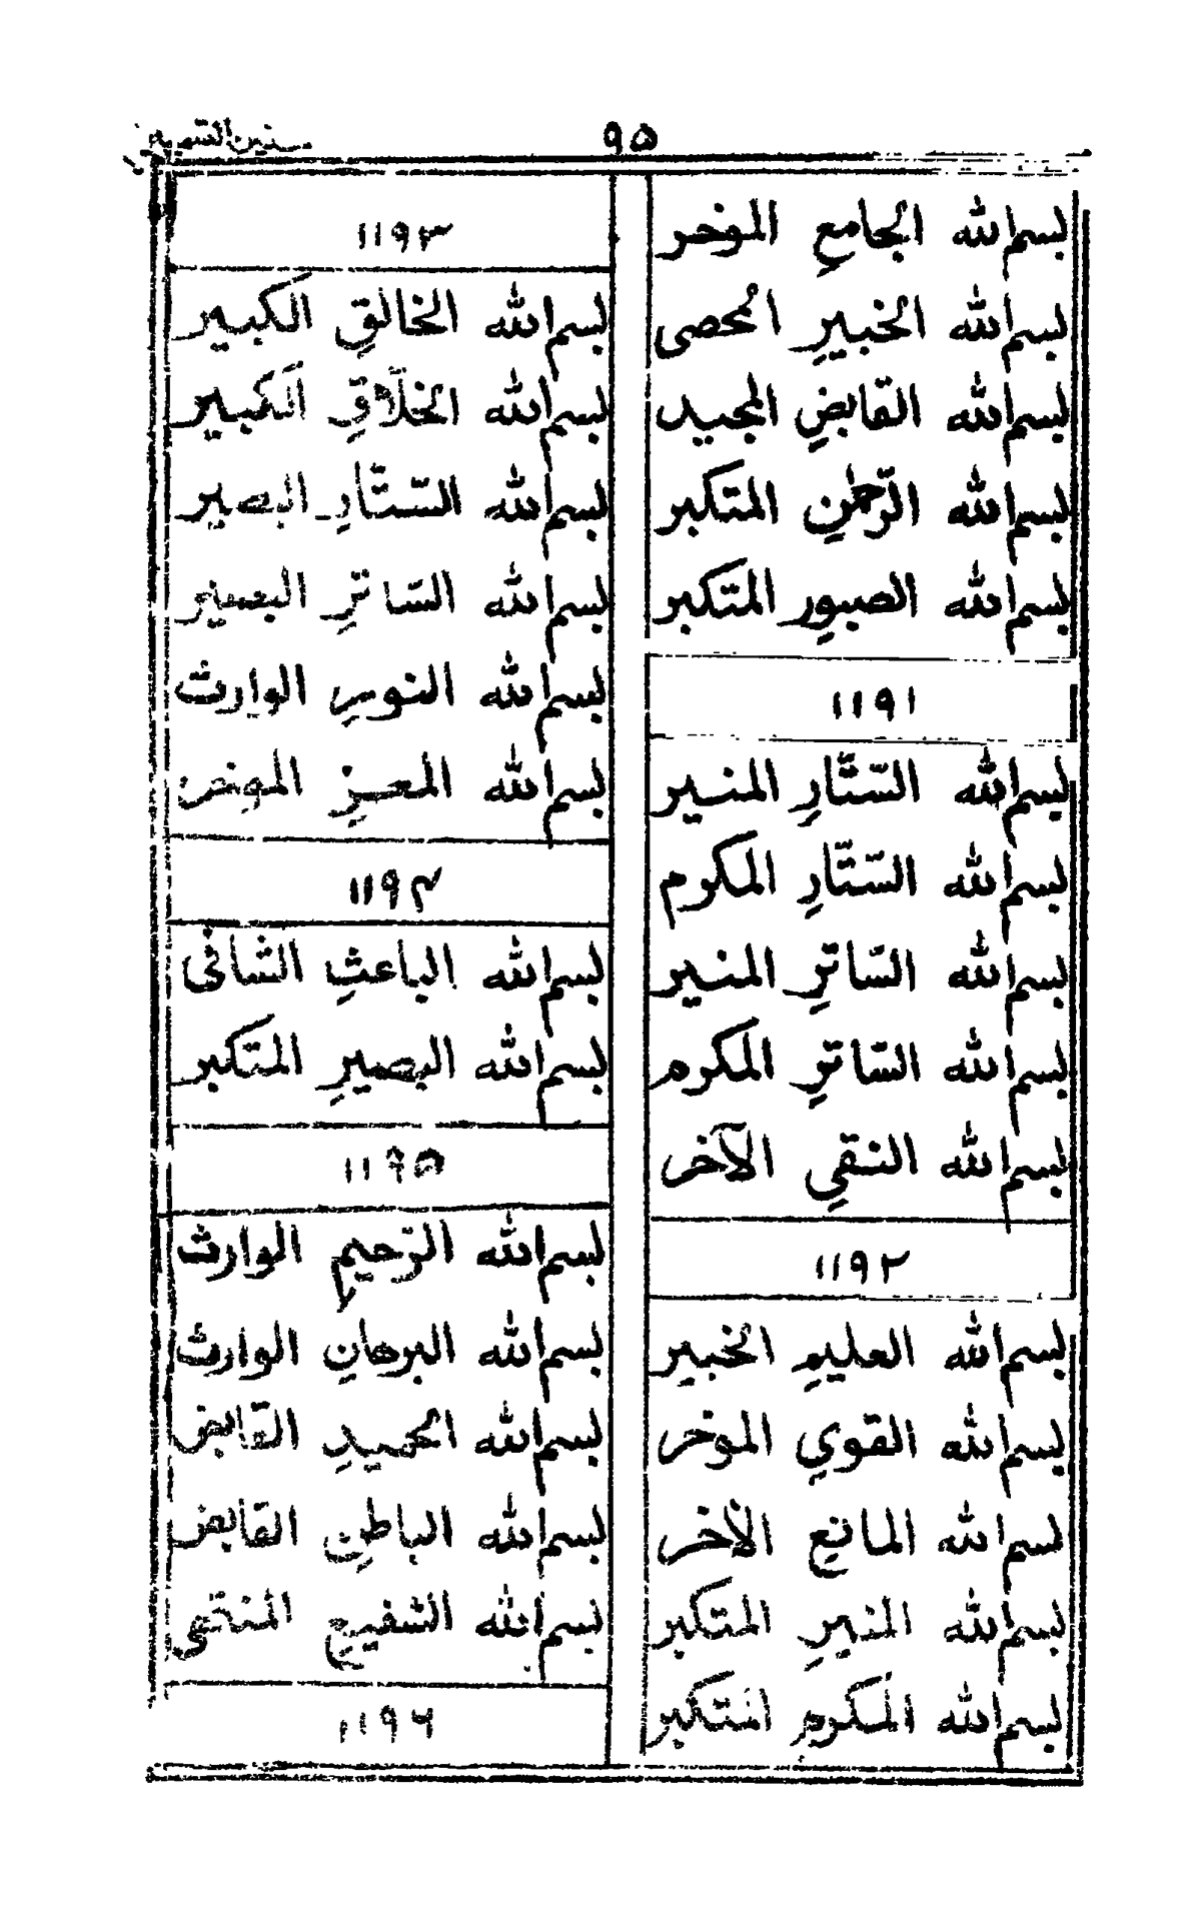 ٩٥
سنين التسمية
بسم الله الجامعِ الموخر
بسم الله الخبيرِ المحصى
بسم الله القابضِ المجيد
بسم الله الرّحمٰنِ المتكبر
بسم الله الصبورِ المتكبر
١١٩١
بسم الله السّتّارِ المنير
بسم الله السّتّارِ المكرم
بسم الله السّاترِ المنير
بسم الله السّاترِ المكرم
بسم الله النقيِ الآخر
١١٩٢
بسم الله العليمِ الخبير
بسم الله القويِ الموخر
بسم الله المانعِ الأخر
بسم الله المنيرِ المتكبر
بسم الله المكرمِ المتكبر
١١٩٣
بسم الله الخالقِ الكبير
بسم الله الخلّاقِ الكبير
بسم الله السّتّارِ البصير
بسم الله السّاترِ البصير
بسم الله النورِ الوارث
بسم الله المعزِ الموخر
١١٩٤
بسم الله الباعثِ الشافى
بسم الله البصيرِ المتكبر
١١٩٥
بسم الله الرّحيمِ الوارث
بسم الله البرهانِ الوارث
بسم الله الحميدِ القابض
بسم الله الباطنِ القابض
بسم الله الشفيعِ المنتهى
١١٩٦